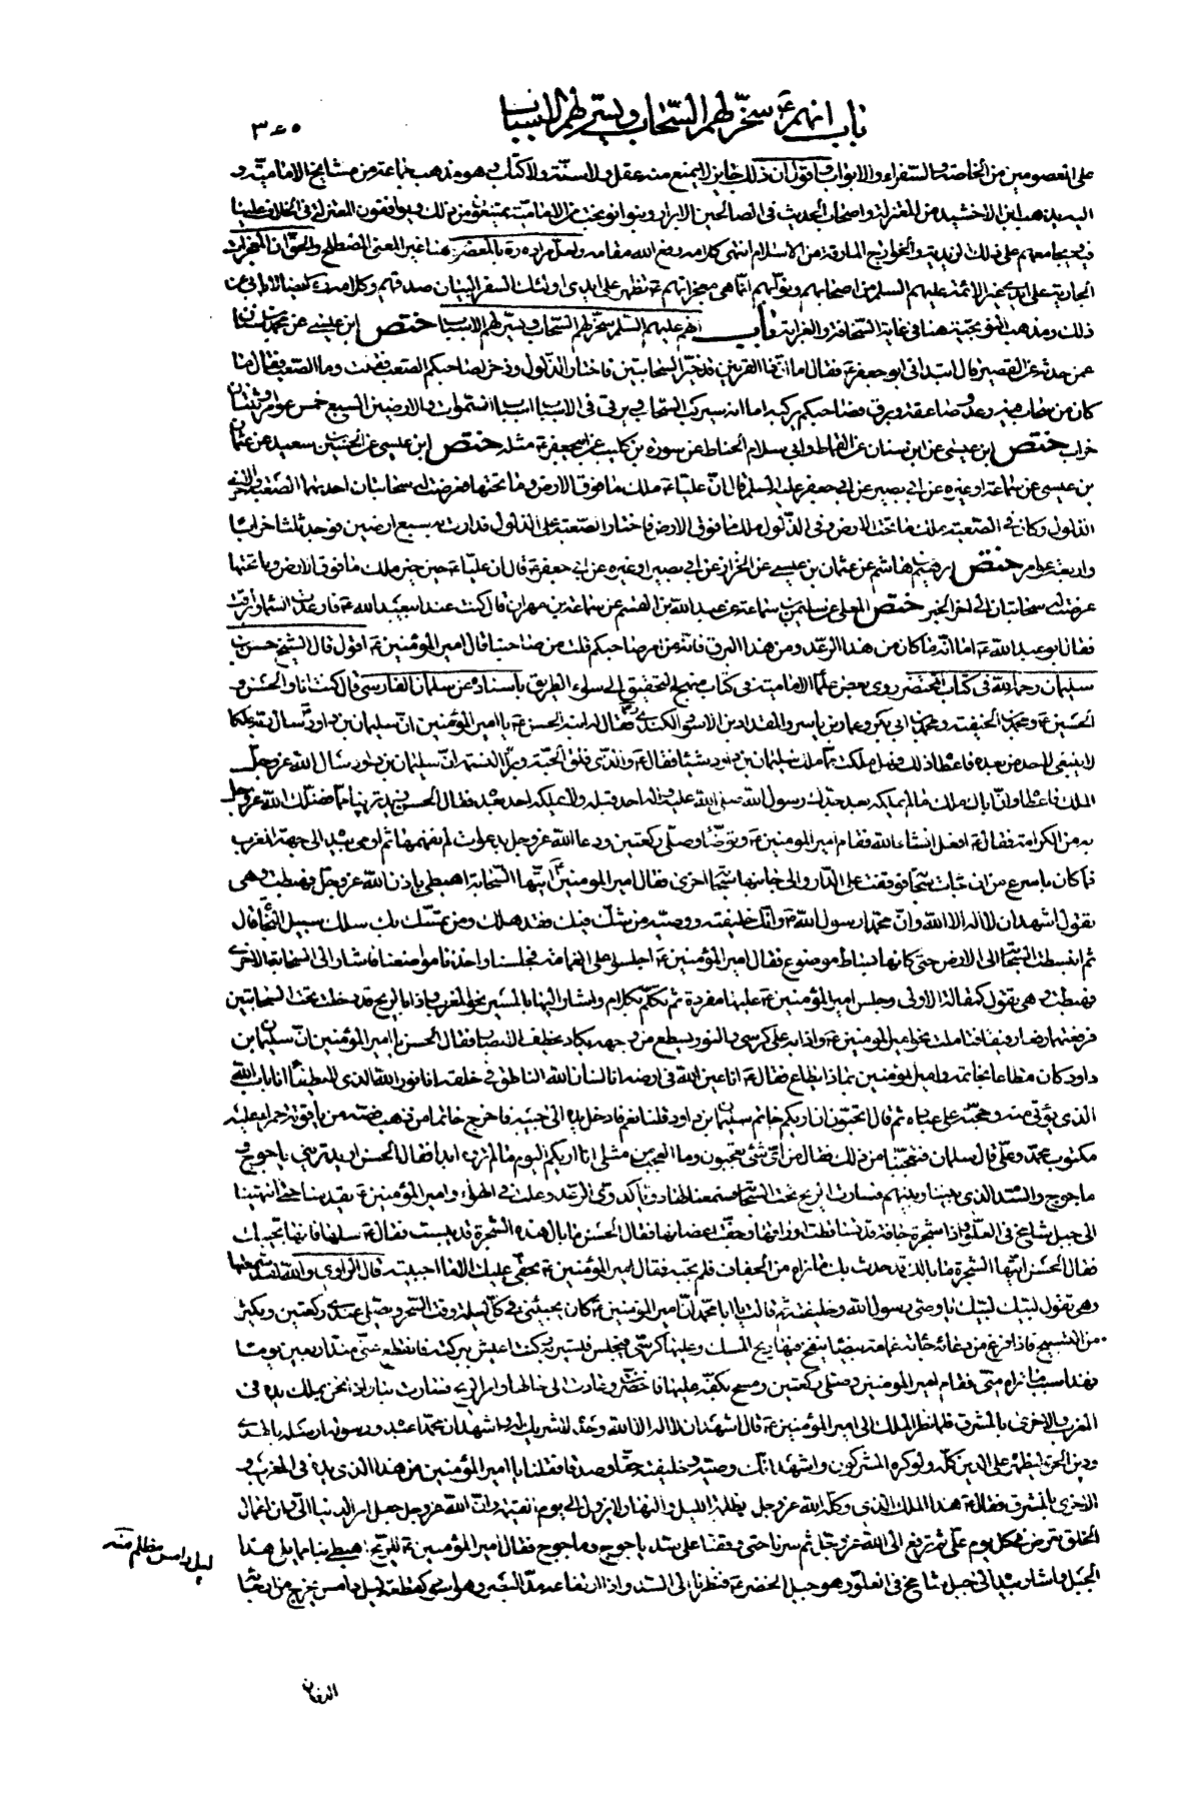 باب انهم ع سخر لهم السحاب ويسر لهم الاسباب
٣٤٥
على المعصومين من الخاصة والسفراء والابواب واقول ان ذلك جايز لا يمنع منه عقل ولا سنة ولا كتاب وهو مذهب جماعة من مشايخ الامامية و
اليه يذهب ابن الاخشيد من المعتزلة واصحاب الحديث في الصالحين الابرار وبنو نوبخت من الامامية يمتنعون من ذلك ويوافقون المعتزلة في الخلاف علينا
فيه ويجامعهم على ذلك الزيدية والخوارج المارقة من الاسلام انتهى كلامه رفع الله مقامه ولعل مراده ره بالمعصوم هنا غير المعنى المصطلح والحق ان المعجزات
الجارية على ايدي غير الائمة عليهم السلم من اصحابهم ونوابهم انما هي معجزاتهم ع تظهر على ايدي اولئك السفراء لبيان صدقهم وكلامه ره ايضا لا يأبى عن
ذلك ومذهب النوبختية هنا في غاية السخافة والغرابة باب انهم عليهم السلم سخر لهم السحاب ويسر لهم الاسباب ختص ابن عيسى عن محمد بن سنان
عمن حدثه عن القصير قال ابتداني ابو جعفر ع فقال اما ان ذا القرنين قد خير السحابتين فاختار الذلول وذخر لصاحبكم الصعب فقلت وما الصعب فقال ما
كان من سحاب فيه رعد وصاعقة وبرق فصاحبكم يركبه اما انه سيركب السحاب ويرقى في الاسباب اسباب السموات والارضين السبع خمس عوامر وثنتان
خراب ختص ابن عيسى عن ابن سنان عن القماط وابي سلام الحناط عن سورة بن كليب عن ابي جعفر ع مثله ختص ابن عيسى عن الحسين بن سعيد عن عثمان
بن عيسى عن سماعة او غيره عن ابي بصير عن ابي جعفر عليه السلم قال ان عليا ع ملك ما فوق الارض وما تحتها فعرضت له سحابتان احديهما الصعبة والاخرى
الذلول وكان في الصعبة ملك ما تحت الارض وفي الذلول ملك ما فوق الارض فاختار الصعبة على الذلول فدارت به سبع ارضين فوجد ثلثا خرابا
واربعة عوامر ختص ابراهيم بن هاشم عن عثمان بن عيسى عن الخزاز عن ابي بصير او غيره عن ابي جعفر ع قال ان عليا ع حين خير ملك ما فوق الارض وما تحتها
عرضت له سحابتان الى اخر الخبر ختص المعلى عن سليمن بن سماعة عن عبد الله بن القسم عن سماعة بن مهران قال كنت عند ابي عبد الله ع فارعدت السماء وابرقت
فقال ابو عبد الله ع اما انه ما كان من هذا الرعد ومن هذا البرق فانه من امر صاحبكم قلت من صاحبنا قال امير المؤمنين ع اقول قال الشيخ حسن بن
سليمان رحمه الله في كتاب المحتضر روى بعض علماء الامامية في كتاب منهج التحقيق الى سواء الطريق باسناده عن سلمان الفارسي قال كنت انا والحسن و
الحسين ع ومحمد بن الحنفية ومحمد بن ابي بكر وعمار بن ياسر والمقداد بن الاسود الكندي رض فقال له ابنه الحسن ع يا امير المؤمنين ان سليمان بن داود ع سال ربه ملكا
لا ينبغي لاحد من بعده فاعطاه ذلك فهل ملكت مما ملك سليمان بن داود شيئا فقال ع والذي فلق الحبة وبرأ النسمة ان سليمان بن داود سال الله عز وجل
الملك فاعطاه وان اباك ملك ما لم يملكه بعد جدك رسول الله صلى الله عليه واله احد قبله ولا يملكه احد بعده فقال الحسن نريد ترينا مما فضلك الله عز وجل
به من الكرامة فقال ع افعل انشاء الله فقام امير المؤمنين ع وتوضأ وصلى ركعتين ودعا الله عز وجل بدعوات لم نفهمها ثم اومى بيده الى جهة المغرب
فما كان باسرع من ان جاءت سحابة فوقفت على الدار والى جانبها سحابة اخرى فقال امير المؤمنين ع ايتها السحابة اهبطي باذن الله عز وجل فهبطت وهي
تقول اشهد ان لا اله الا الله وان محمدا رسول الله ص وانك خليفته ووصيه من شك فيك فقد هلك ومن تمسك بك سلك سبيل النجاة قال
ثم انبسطت السحابة الى الارض حتى كانها بساط موضوع فقال امير المؤمنين ع اجلسوا على الغمامة فجلسنا واخذنا مواضعنا فاشار الى السحابة الاخرى
فهبطت وهي تقول كمقالة الاولى وجلس امير المؤمنين ع عليها مفردة ثم تكلم بكلام واشار اليها بالمسير نحو المغرب واذا بالريح قد دخلت تحت السحابتين
فرفعتهما رفعا رفيقا فتاملت نحو امير المؤمنين ع واذا به على كرسي والنور يسطع من وجهه يكاد يخطف الابصار فقال الحسن يا امير المؤمنين ان سليمان بن
داود كان مطاعا بخاتمه وامير المؤمنين بماذا يطاع فقال ع انا عين الله في ارضه انا لسان الله الناطق في خلقه انا نور الله الذي لا يطفأ انا باب الله
الذي يؤتى منه وحجته على عباده ثم قال اتحبون ان اريكم خاتم سليمان بن داود قلنا نعم فادخل يده الى جيبه فاخرج خاتما من ذهب فصه من ياقوتة حمراء عليه
مكتوب محمد وعلي قال سلمان فتعجبنا من ذلك فقال من اي شئ تعجبون وما العجب من مثلي انا اريكم اليوم ما لم تروه ابدا فقال الحسن اريد تريني ياجوج و
ماجوج والسد الذي بيننا وبينهم فسارت الريح تحت السحابة فسمعنا لها دويا كدوي الرعد وعلت في الهواء وامير المؤمنين ع يقدمنا حتى انتهينا
الى جبل شامخ في العلو واذا شجرة جافة قد تساقطت اوراقها وجفت اغصانها فقال الحسن ما بال هذه الشجرة قد يبست فقال ع سلها فانها تجيبك
فقال الحسن ايتها الشجرة ما بالك قد حدث بك ما نراه من الجفاف فلم تجبه فقال امير المؤمنين ع بحقي عليك الا ما اجبتيه قال الراوي والله لقد سمعتها
وهي تقول لبيك لبيك يا وصي رسول الله وخليفته ثم قالت يا ابا محمد ان امير المؤمنين ع كان يجيئني في كل ليلة وقت السحر ويصلي عندي ركعتين ويكثر
من التسبيح فاذا فرغ من دعائه جاءته غمامة بيضاء ينفح منها ريح المسك وعليها كرسي فيجلس فتسير به وكنت اعيش ببركته فانقطع عني منذ اربعين يوما
فهذا سبب ما تراه مني فقام امير المؤمنين وصلى ركعتين ومسح بكفه عليها فاخضرت وعادت الى حالها وامر الريح فسارت بنا واذا نحن بملك يده في
المغرب والاخرى بالمشرق فلما نظر الملك الى امير المؤمنين ع قال اشهد ان لا اله الا الله وحده لا شريك له واشهد ان محمدا عبده ورسوله ارسله بالهدى
ودين الحق ليظهره على الدين كله ولو كره المشركون واشهد انك وصيه وخليفته حقا وصدقا فقلنا يا امير المؤمنين من هذا الذي يده في المغرب و
الاخرى بالمشرق فقال ع هذا الملك الذي وكله الله عز وجل بظلمة الليل والنهار لا يزول الى يوم القيمة وان الله عز وجل جعل امر الدنيا الي وان اعمال
الخلق تعرض في كل يوم علي ثم ترفع الى الله عز وجل ثم سرنا حتى وقفنا على سد ياجوج وماجوج فقال امير المؤمنين ع للريح اهبطي بنا مما يلي هذا
الجبل واشار بيده الى جبل شامخ في العلو وهو جبل الخضر ع فنظرنا الى السد واذا ارتفاعه مد البصر وهو اسود كقطعة ليل دامس يخرج من ارجائه
ليل دامس مظلم منه
الدخان